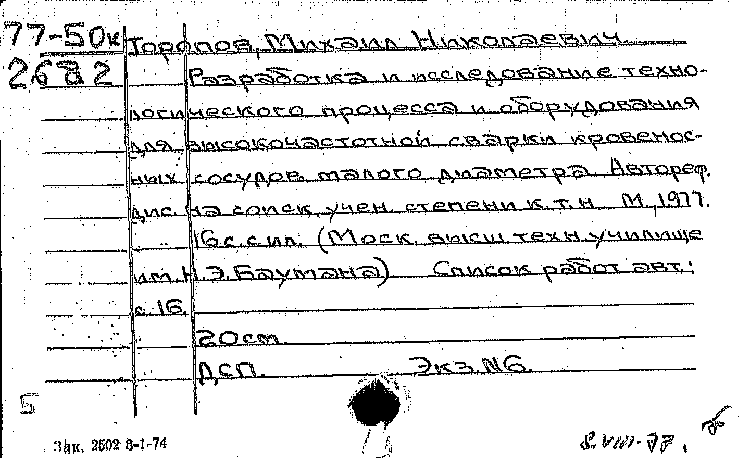 77-50к Торопов, Михаил Николаевич
2682 Разработка и исследование техно-
логического процесса и оборудования
для высокочастотной сварки кровенос-
ных сосудов малого диаметра. Автореф.
дис. на соиск. учен. степени к.т.н. М., 1977.
16 с. с ил. (Моск. высш. техн. училище
им. Н.Э. Баумана) Список работ авт.:
с. 16.
20 см.
ДСП. Экз. №6.
5
Зак. 2502 8-1-74
8.VIII-77.